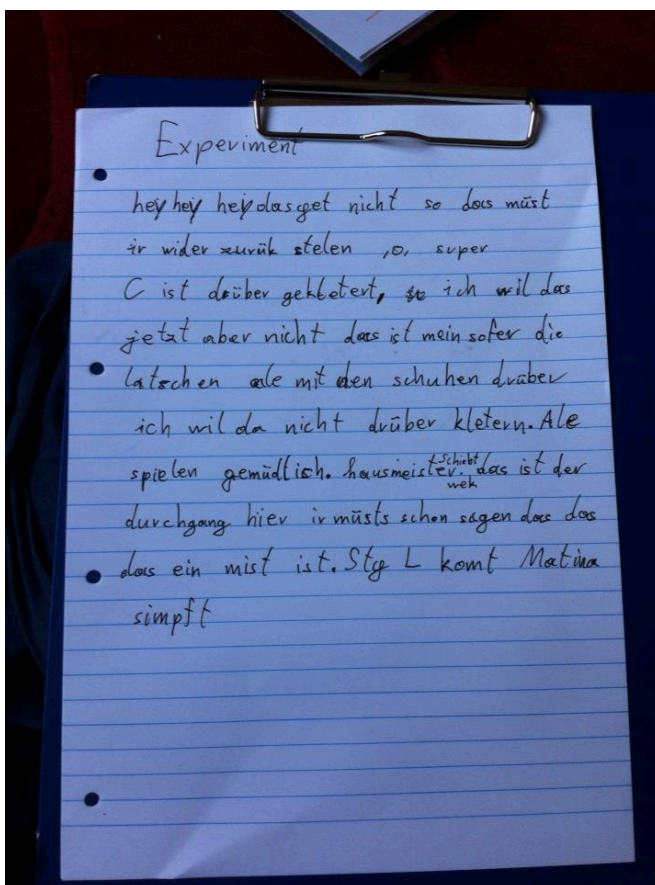 Experiment
hey hey hey das get nicht so das müst
ir wider zurük stelen ,o, super
C ist drüber gekletert, ich wil das
jetzt aber nicht das ist mein sofer die
latschen ale mit den schuhen drüber
ich wil da nicht drüber kletern. Ale
spielen gemüdlich. hausmeister schiebt wek. das ist der
durchgang hier ir müsts schon sagen das das
das ein mist ist. Stg L komt Matina
simpft